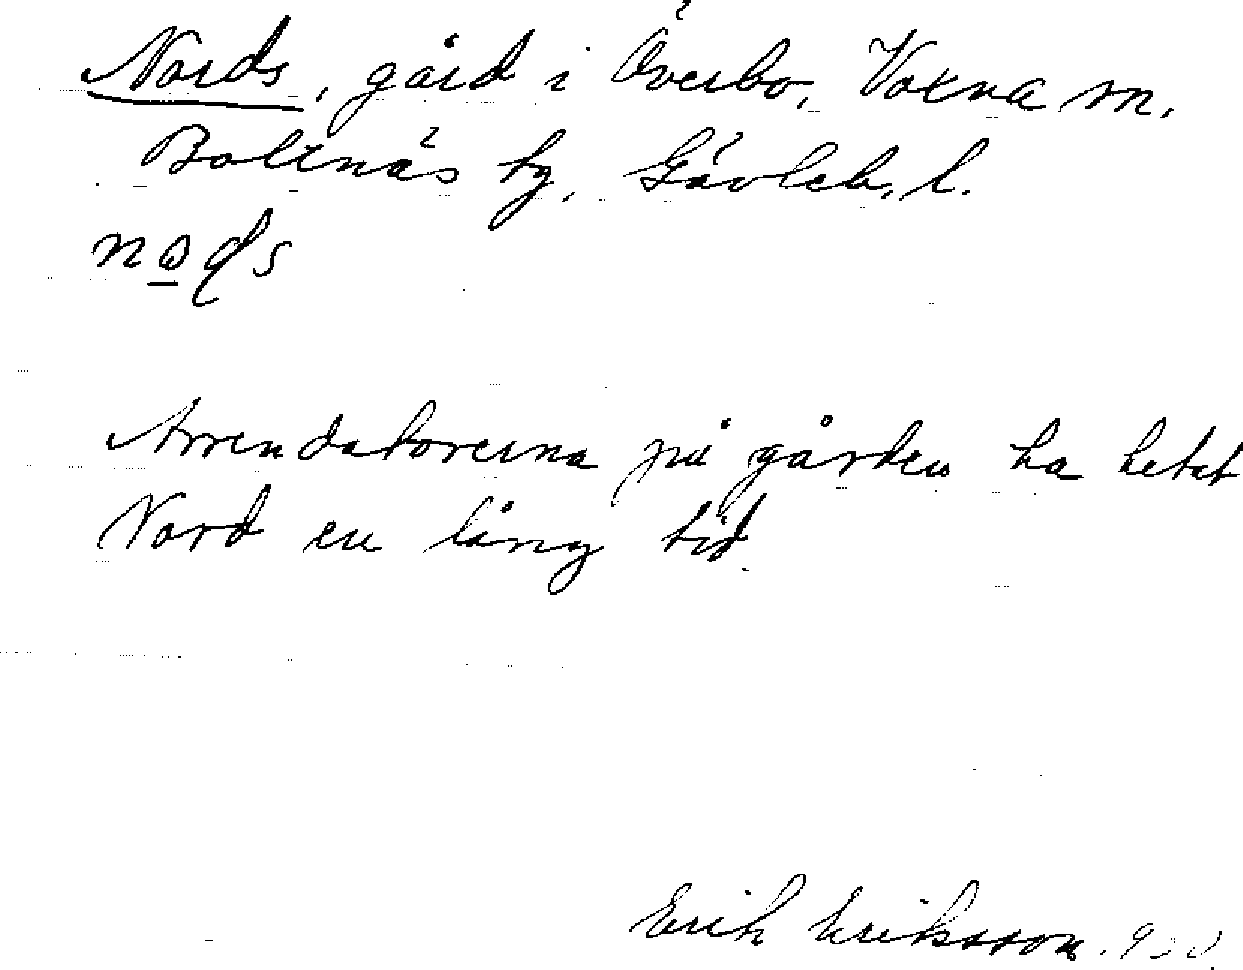 Nords, gård i Överbo, Voxna sn.
Bollnäs tg, Gävleb. l.
nods
Arrendatorerna på gården ha hetat
Nord en lång tid.
Erik Eriksson.